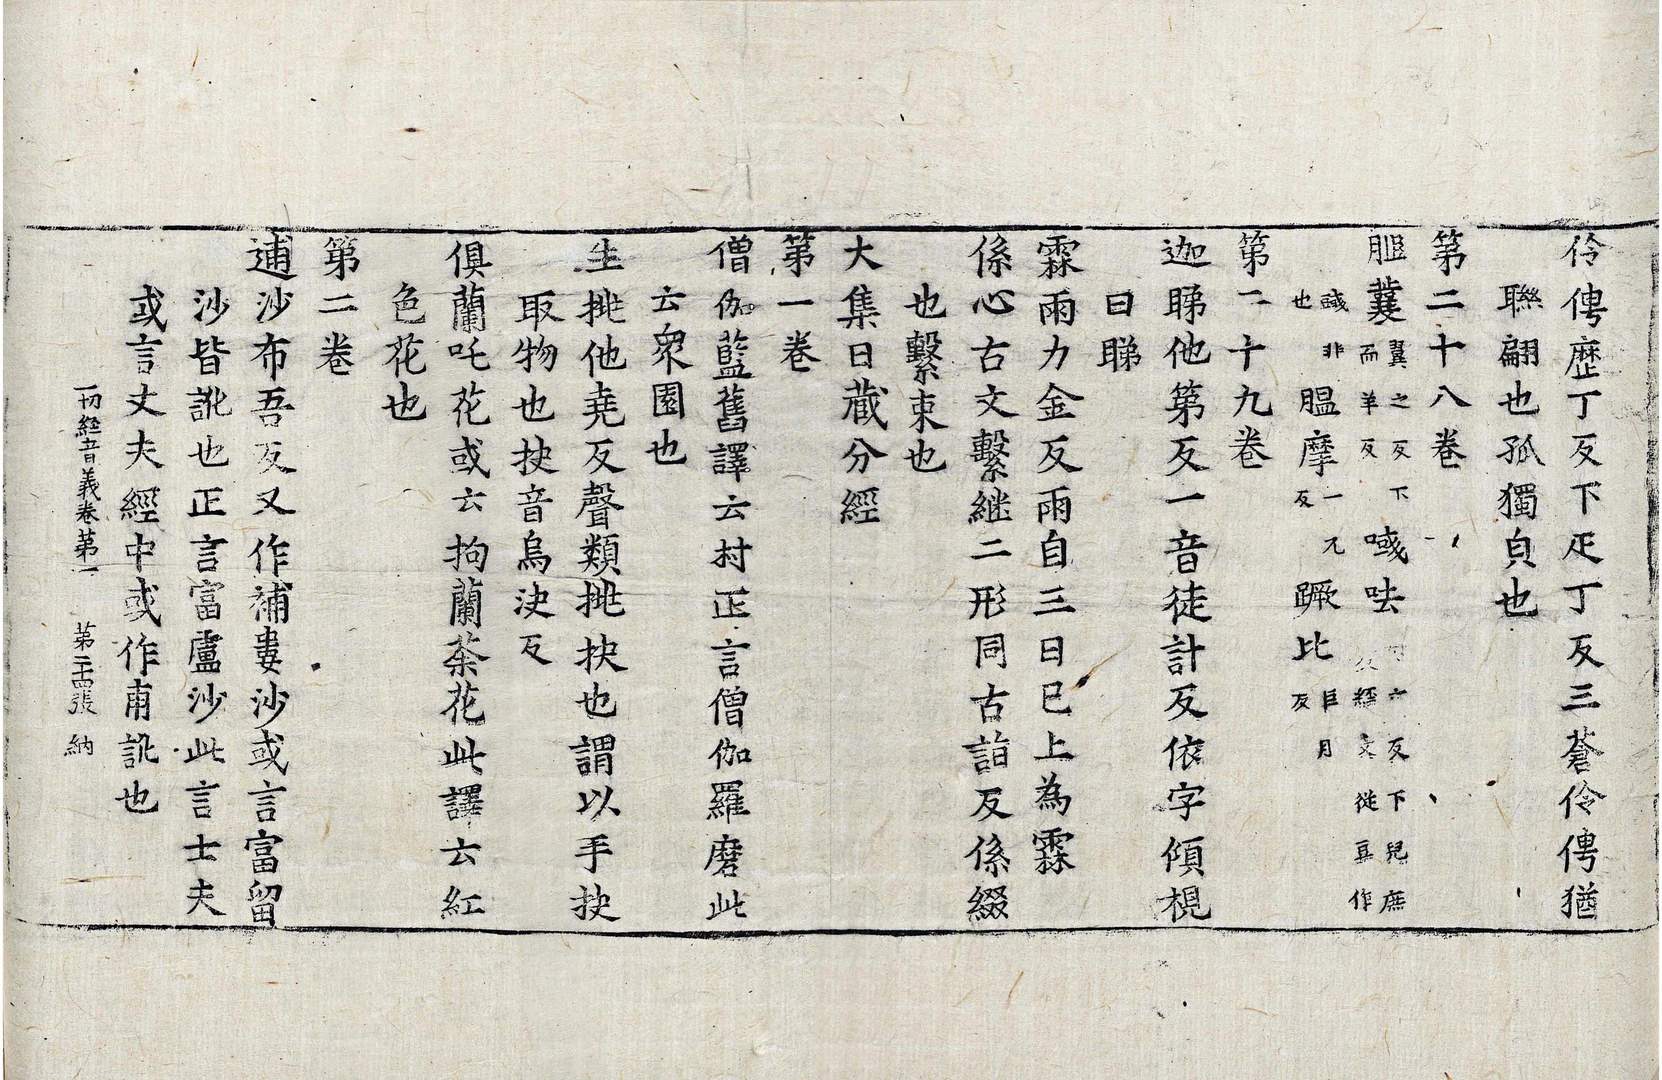 伶俜歷丁反下疋丁反三蒼伶俜猶
聯翩也孤獨皃也
第二十八卷
𦜉蘘翼之反下而羊反 㖪呿 六反下皃庶反經文從豆作
誠非也 腽摩一兀反 蹶比巨月反
第二十九卷
迦睇他第反一音徒計反依字傾梘
曰睇
霖雨力金反雨自三日已上為霖
係心古文繫継二形同古詣反係綴
也繫束也
大集日藏分經
第一卷
僧伽藍舊譯云村正言僧伽羅磨此
云衆園也
生挑他堯反聲類挑抉也謂以手抉
取物也抉音烏决反
俱蘭吒花或云拘蘭荼花此譯云紅
色花也
第二卷
逋沙布吾反又作補婁沙或言富留
沙皆訛也正言富盧沙此言士夫
或言丈夫經中或作甫訛也
一切經音義卷第一 第二十四張 納